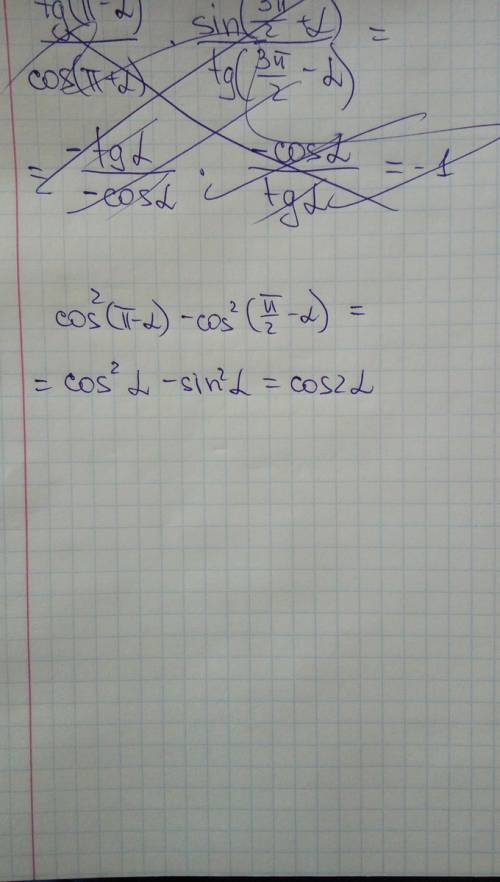 tg(π-α)/cos(π+α) · sin(3π/2+α)/tg(3π/2-α) =
= -tgα/-cosα · -cosα/tgα = -1
cos²(π-α) - cos²(π/2-α) =
= cos²α - sin²α = cos2α